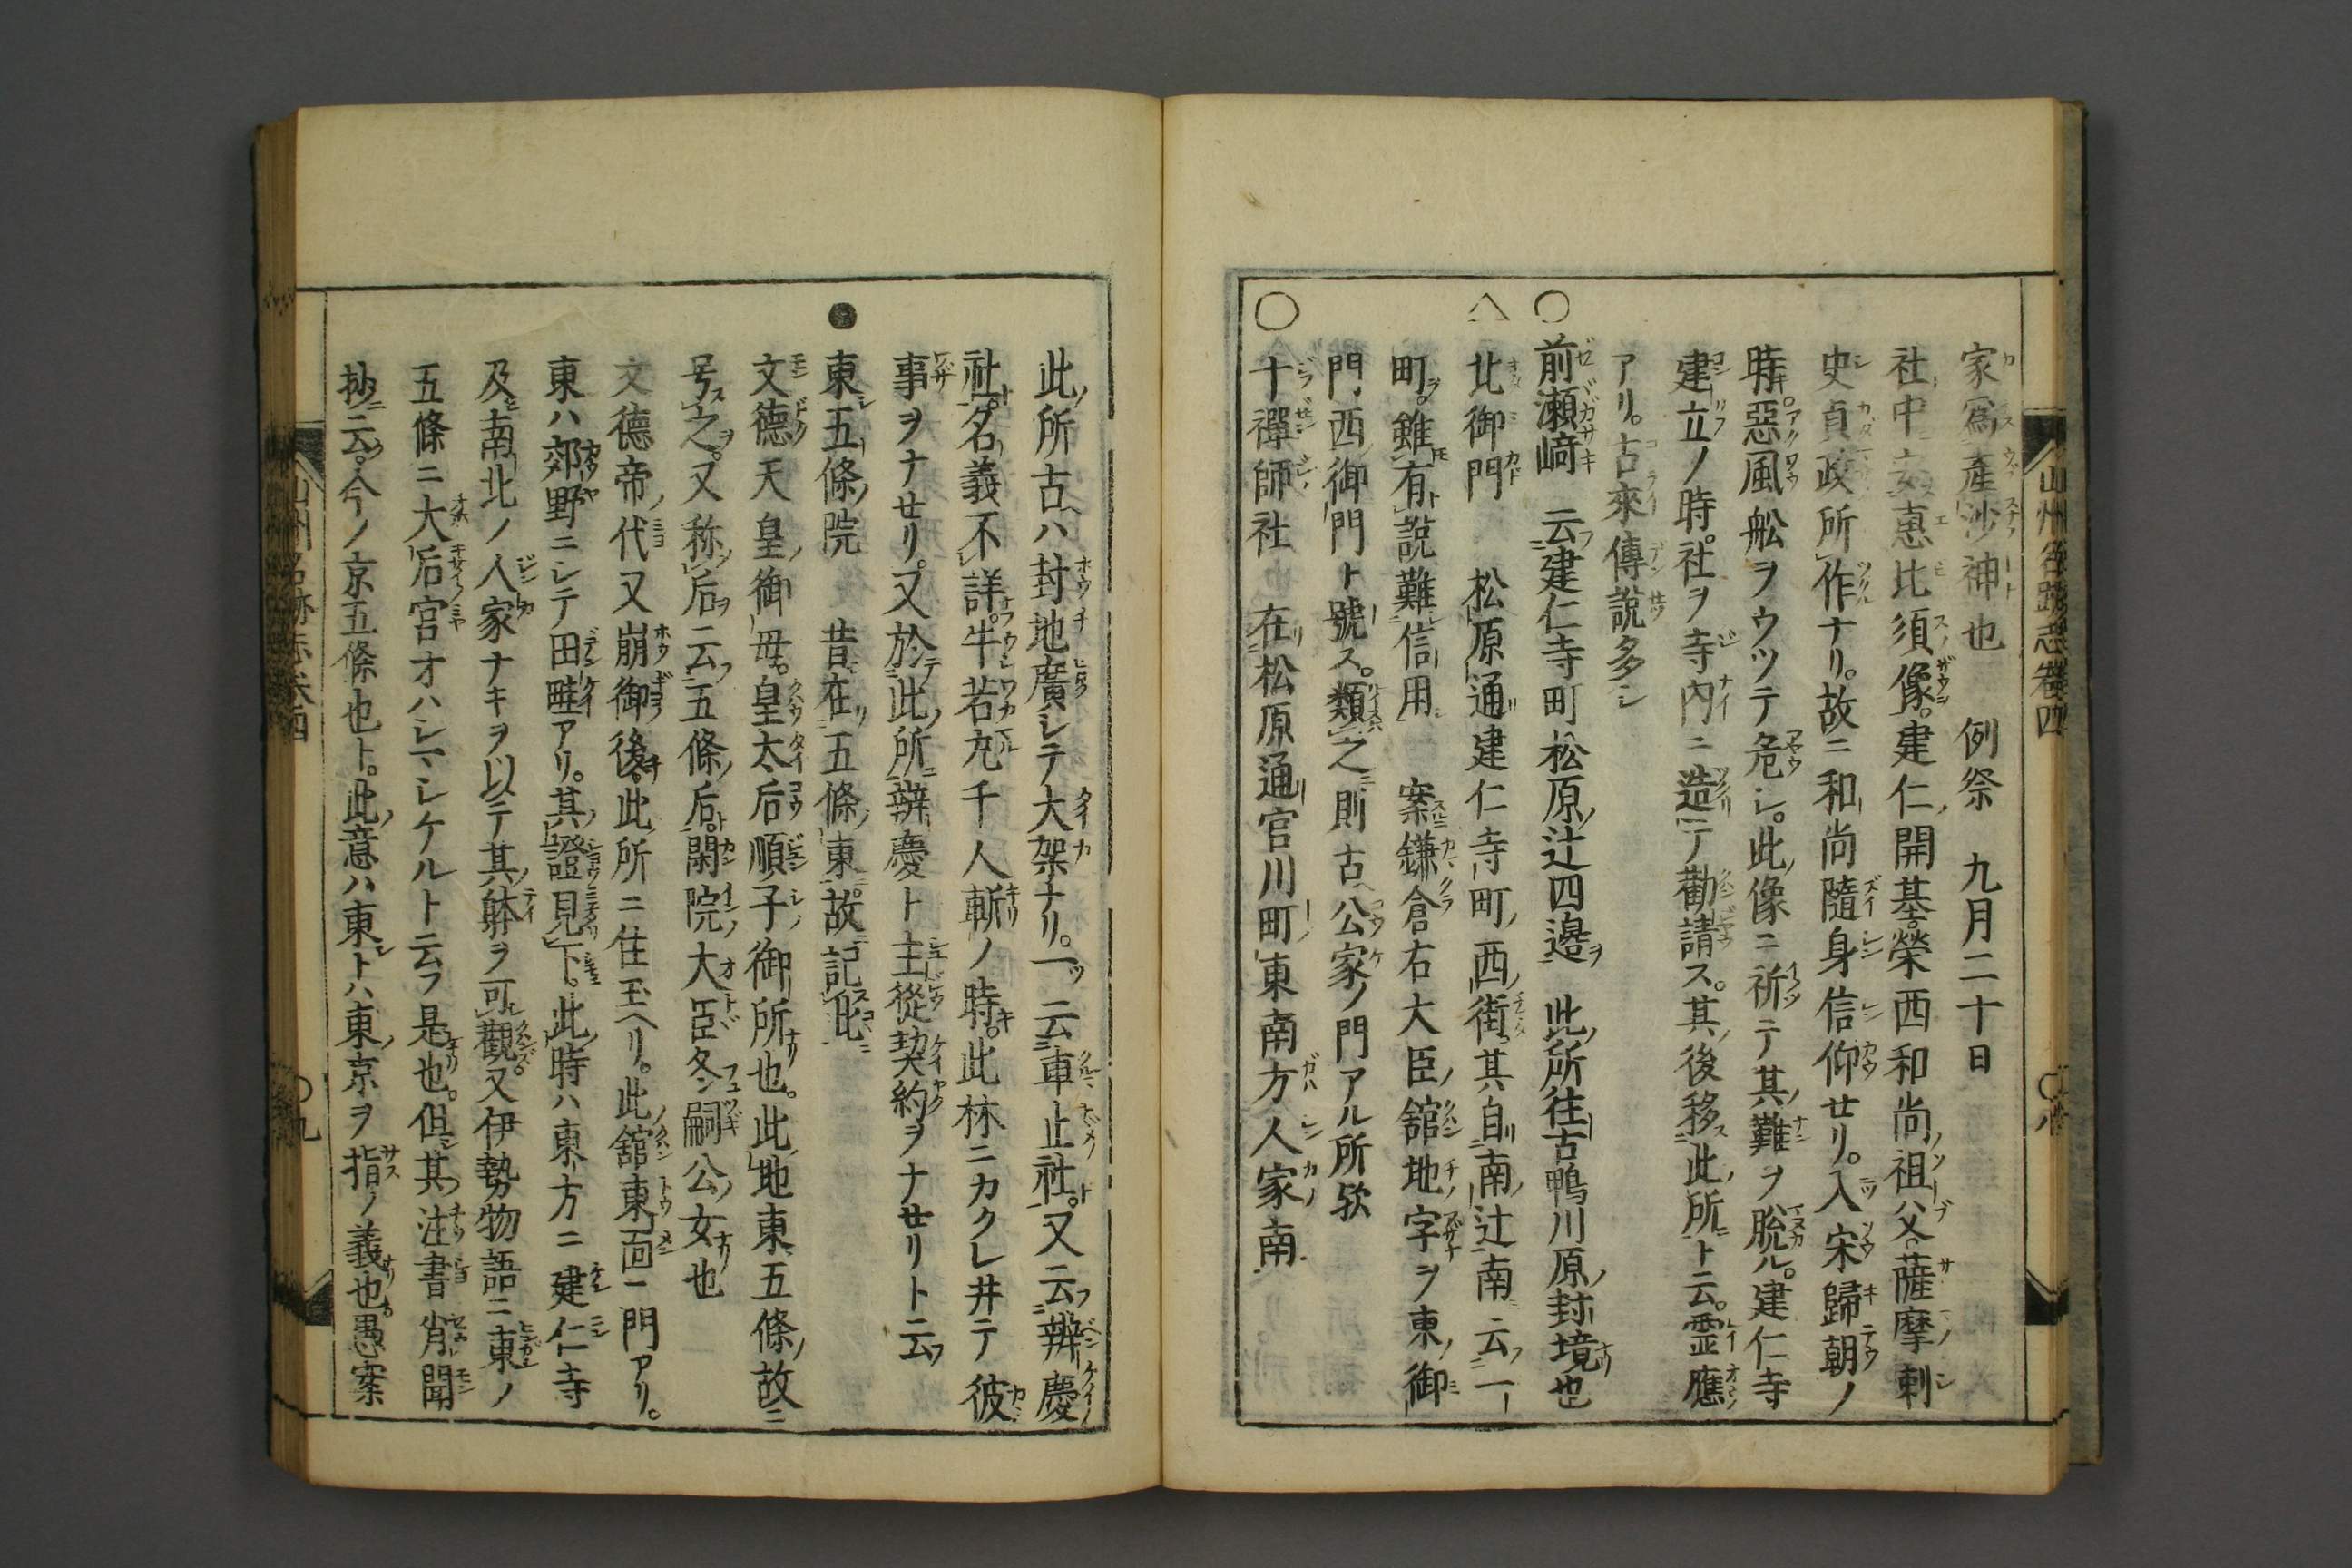 山州名跡志卷四
家爲產沙神也　例祭　九月二十日
社中安惠比須像。建仁開基榮西和尚祖父薩摩刺
史貞政所作ナリ。故ニ和尚隨身信仰せリ。入宋歸朝ノ
時。惡風舩ヲウツテ危シ。此像ニ祈テ其難ヲ脫ル。建仁寺
建立ノ時。社ヲ寺內ニ造テ勸請ス。其後移此所ト云。霊應
アリ。古來傳說多シ
○前瀬﨑　云建仁寺町松原辻四邉　此所往古鴨川原封境也
△北御門　松原通建仁寺町西街。其自南辻南云一
町。雖有說難信用　案鎌倉右大臣舘地字ヲ東御
門。西御門ト號ス。類之則古公家ノ門アル所欤
○十禪師社　在松原通官川町東南方人家南
此所古ハ封地廣シテ大架ナリ。一云車止社。又云辨慶
社。名義不詳。牛若丸千人斬ノ時。此林ニカクレ井テ彼
事ヲナせリ。又於此所辨慶ト主從契約ヲナせリト云
●東五條院　昔在五條東。故記此
文德天皇御母。皇太后順子御所也。此地東五條故ニ
号之。又称后云五條后。閑院大臣冬嗣公女也
文德帝代又崩御後。此所ニ住玉ヘリ。此舘東面ニ門アリ。
東ハ郊野ニシテ田畦アリ。其證見下。此時ハ東方ニ建仁寺
及南北ノ人家ナキヲ以テ其躰ヲ可觀。又伊勢物語ニ東ノ
五條ニ大后宮オハシマシケルト云フ是也。但其注書肖聞
抄云。今ノ京五條也ト。此意ハ東トハ東京ヲ指ノ義也。愚案
山州名跡志卷四
○九